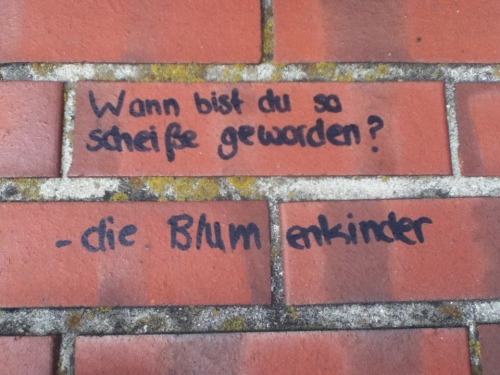 Wann bist du so
scheiße geworden?
- die Blumenkinder